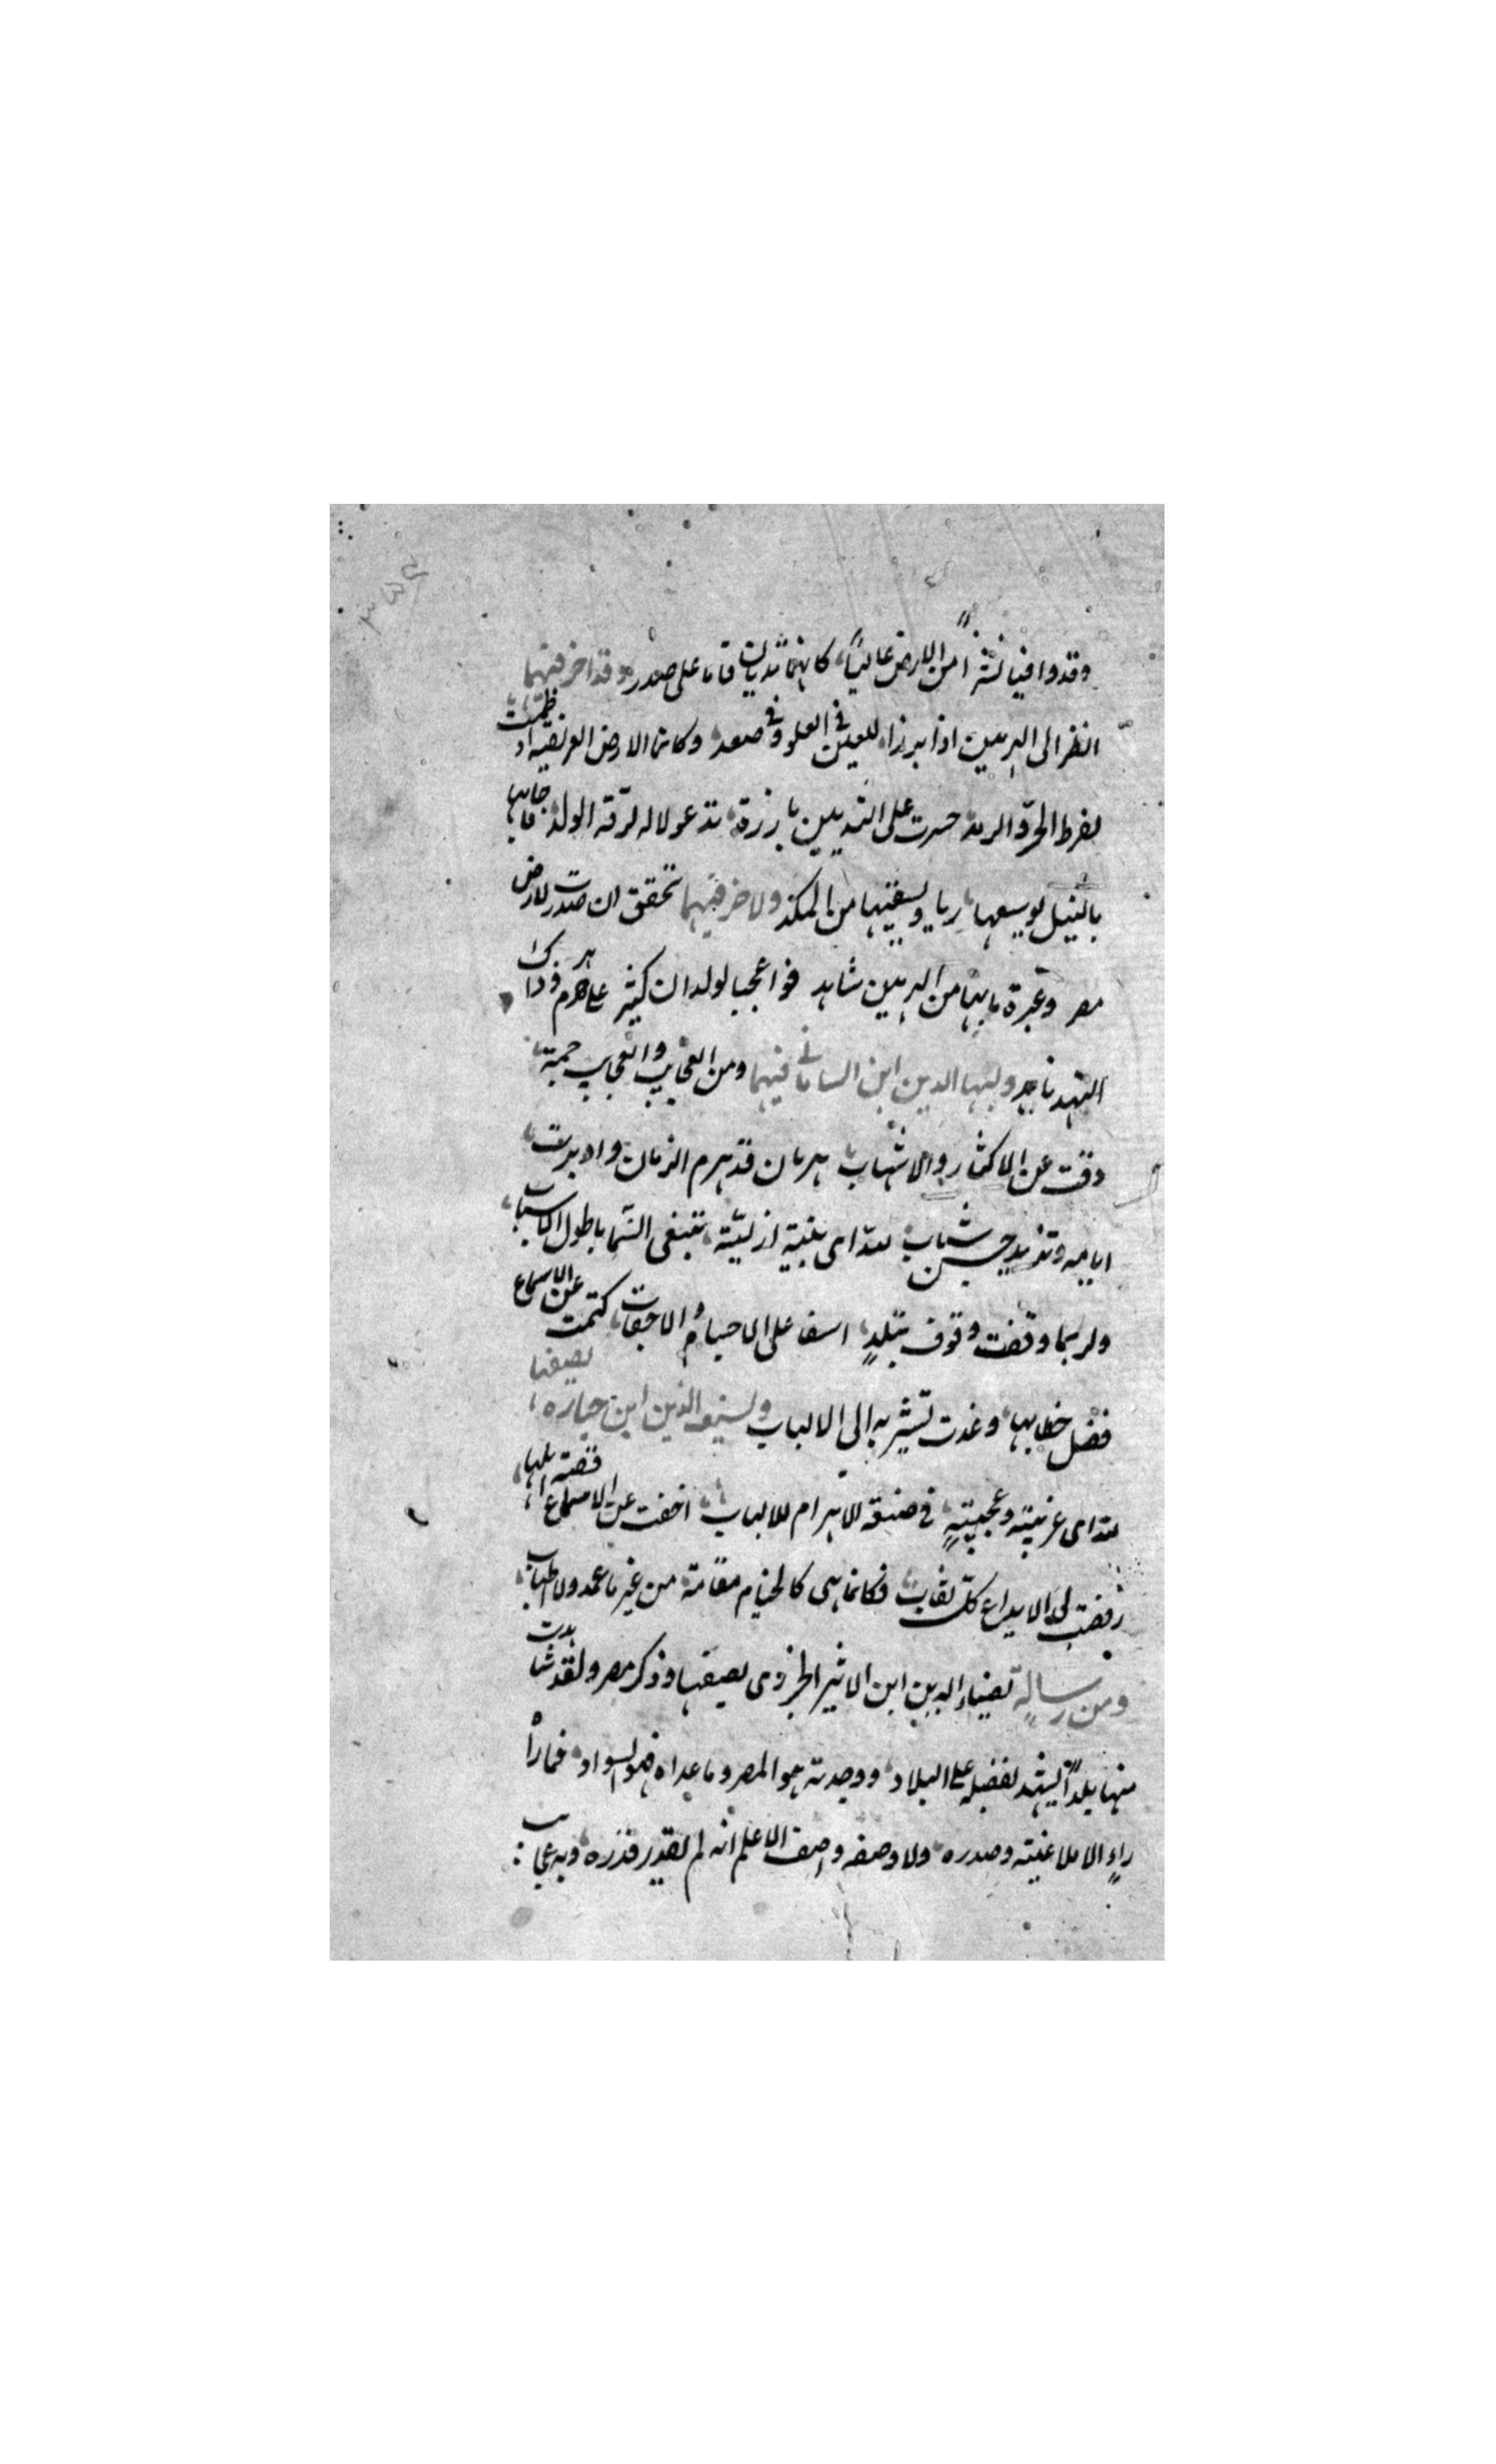 وقد وافيا نشزاً من الارض عالياً كانهما ثديان قاما على صدر وقد اخر فيهما
انظر الى الهرمين اذ ابرزا للعين في العلو وفي صعد وكانما الارض العريضة اذ ظمئت
لفرط الحرّ والرمد حسرت على الثديين بارزة تدعو لاله لرقة الولد فاجابها
بالنيل يوسعها ريا ويسقيها من الكمد ولاخر فيهما تحقق ان صدر الارض
مصر وعبرة ما بهما من الهرمين شاهد فواعجبا لولدان كثير على هرم وذاك
النهد ناهد ولبها الدين ابن الساعاتي فيهما ومن العجايب والعجايب جمة
دقت عن الاكثار والاسهاب هرمان قد هرم الزمان وادبرت
ايامه وتزيد حسن شباب لله اى بنية ازلية تبغى السما باطول الاسباب
ولربما وقفت وقوف تبلد اسفا على الاحيام والاحقاب كتمت عن الاسماع
فضل خطابها وغدت تشير به الى الالباب ولسيف الدين ابن جباره يصيفها
لله اى غريبة وعجيبة في صنعة الاهرام للالباب اخفت عن الاسماع قصة اهلها
ونضت لى الابداع كل نقاب فكانما هى كالخيام مقامة من غير ما عمد ولا اطناب
ومن رسالة لضياء الدين ابن الاثير الجزرى يصيفها وذكر مصر ولقد شاهدت
منها بلداً يشهد بفضله على البلاد ووجدته هو المصر وما عداه فهو السواد فما رآه
راءٍ الا ملا عينه وصدره ولا وصفه واصف الا علم انه لم يقدر قدره وبه عجايب